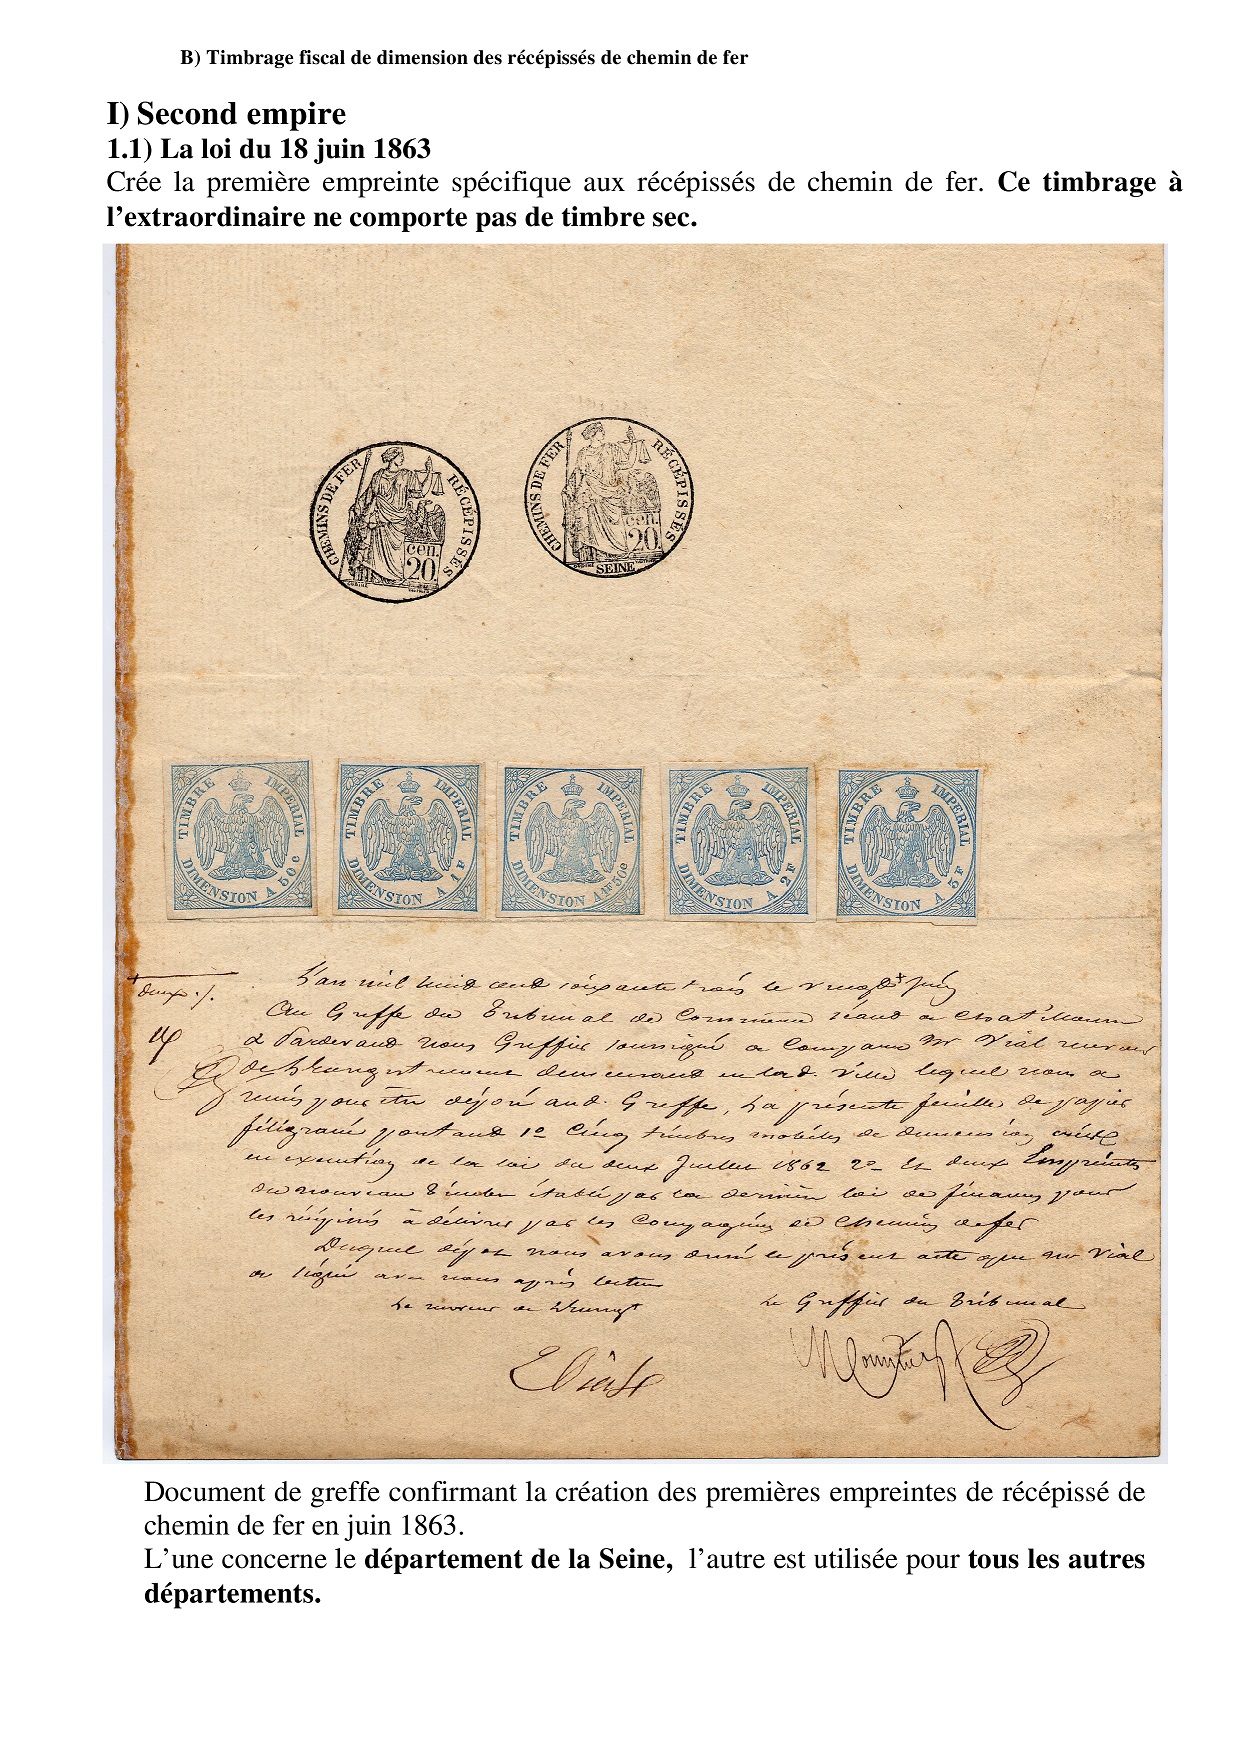 B) Timbrage fiscal de dimension des récépissés de chemin de fer
I) Second empire
1.1) La loi du 18 juin 1863
Crée la première empreinte spécifique aux récépissés de chemin de fer. Ce timbrage à
l'extraordinaire ne comporte pas de timbre sec.
CHEMINS DE FER RÉCÉPISSÉS
cen.
20
CHEMINS DE FER RÉCÉPISSÉS
cen.
20
SEINE
TIMBRE IMPERIAL
DIMENSION A 50c
TIMBRE IMPERIAL
DIMENSION A 1F
TIMBRE IMPERIAL
DIMENSION A 1F50c
TIMBRE IMPERIAL
DIMENSION A 2F
TIMBRE IMPERIAL
DIMENSION A 3F
L'an mil huit cent soixante trois le vingt + juin
+ deux
Au Greffe du Tribunal de Commerce séant à
& Pardevant nous Greffier soussigné a comparu Mr Vial receveur
de l'enregistrement demeurant en lad. ville lequel nous a
remis pour être déposé aud. Greffe, la présente feuille de papier
filigrané portant 1o Cinq timbres mobiles de dimension créés
en exécution de la loi du deux Juillet 1862 2o Et deux Empreintes
du nouveau Timbre établi par la dernière loi de finances pour
les récépissés à délivrer par les Compagnies de Chemins de fer
Duquel dépôt nous avons dressé le présent acte que mr Vial
a signé avec nous après lecture
Le receveur de l'enregt
Le Greffier du Tribunal
Document de greffe confirmant la création des premières empreintes de récépissé de
chemin de fer en juin 1863.
L'une concerne le département de la Seine, l'autre est utilisée pour tous les autres
départements.